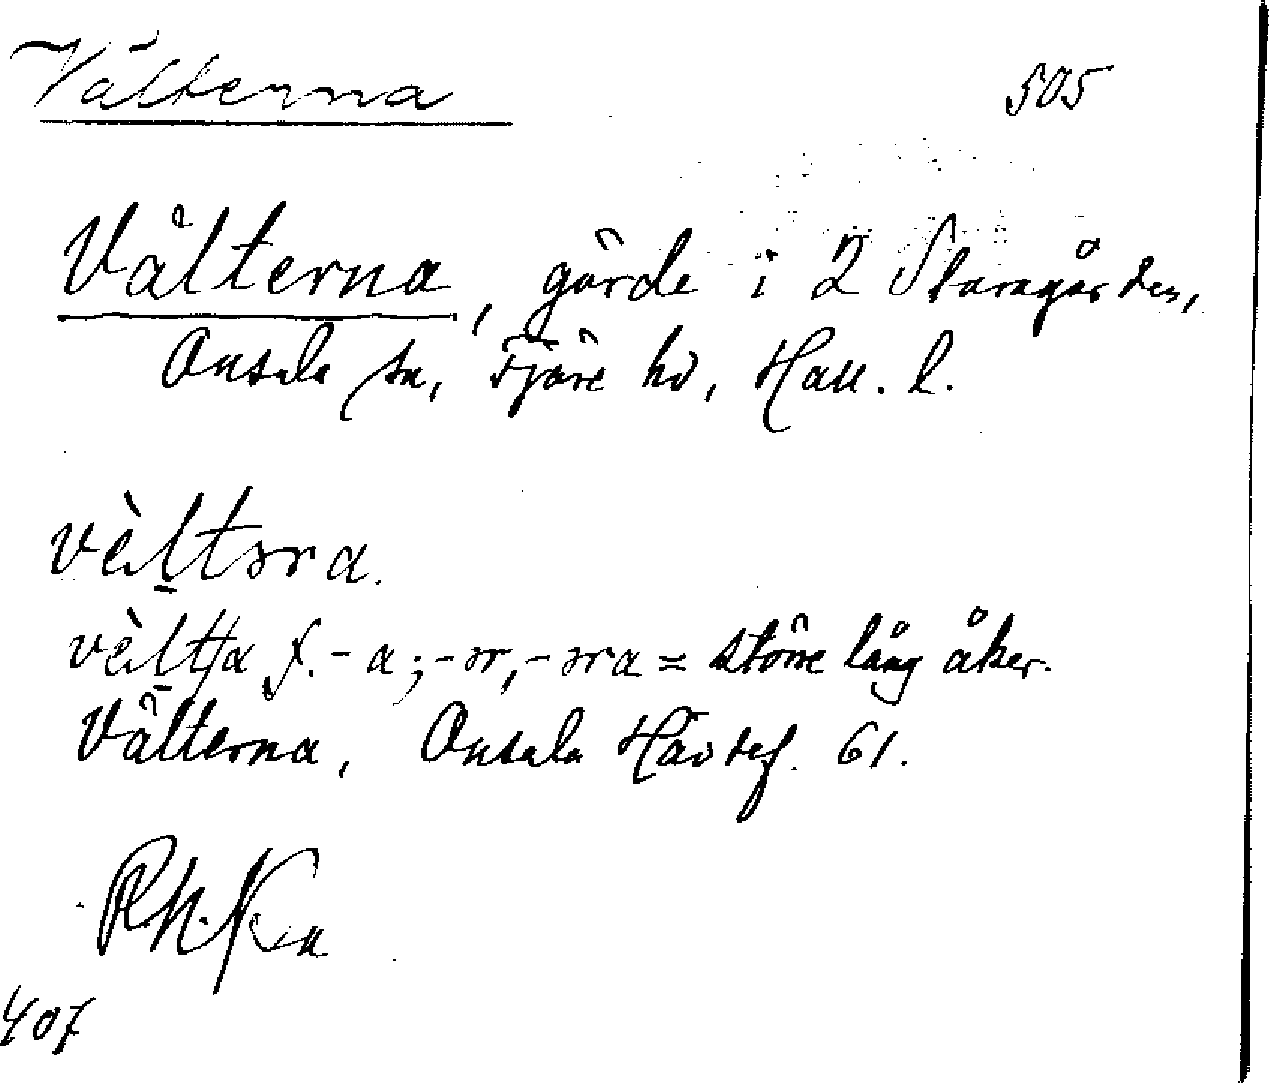 Välterna 505
Välterna, gärde i 2 Staragården,
Onsala sn, Fjäre hd, Hall. l.
vèltəra.
vèlta f. -a; -ər, -əra = större lång åker.
Välterna, Onsala Hävdef. 61.
407